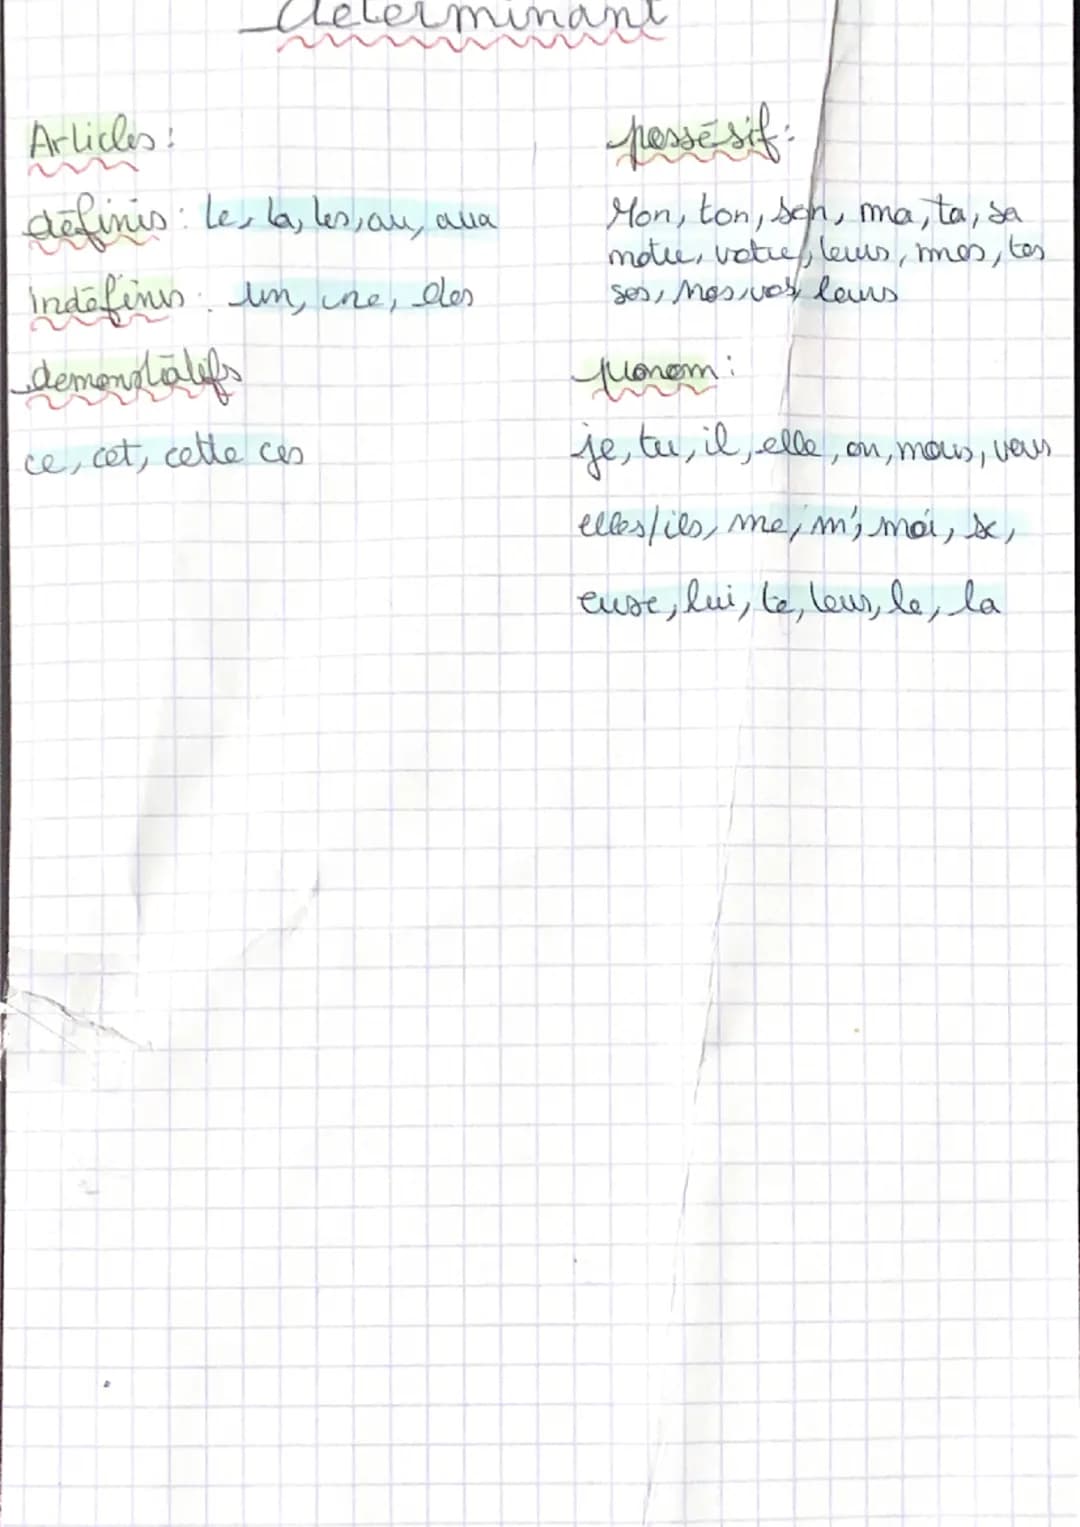 determinant
Articles :
définis : le, la, les, au, aux
indéfinis : un, une, des
demonstratifs
ce, cet, cette ces
possésif :
Mon, ton, son, ma, ta, sa
notre, votre, leurs, mes, tes
ses, Nos, vos, leurs
pronom :
je, tu, il, elle, on, nous, vous
elles/ils, me, m', moi, se,
euxe, lui, te, leur, le, la